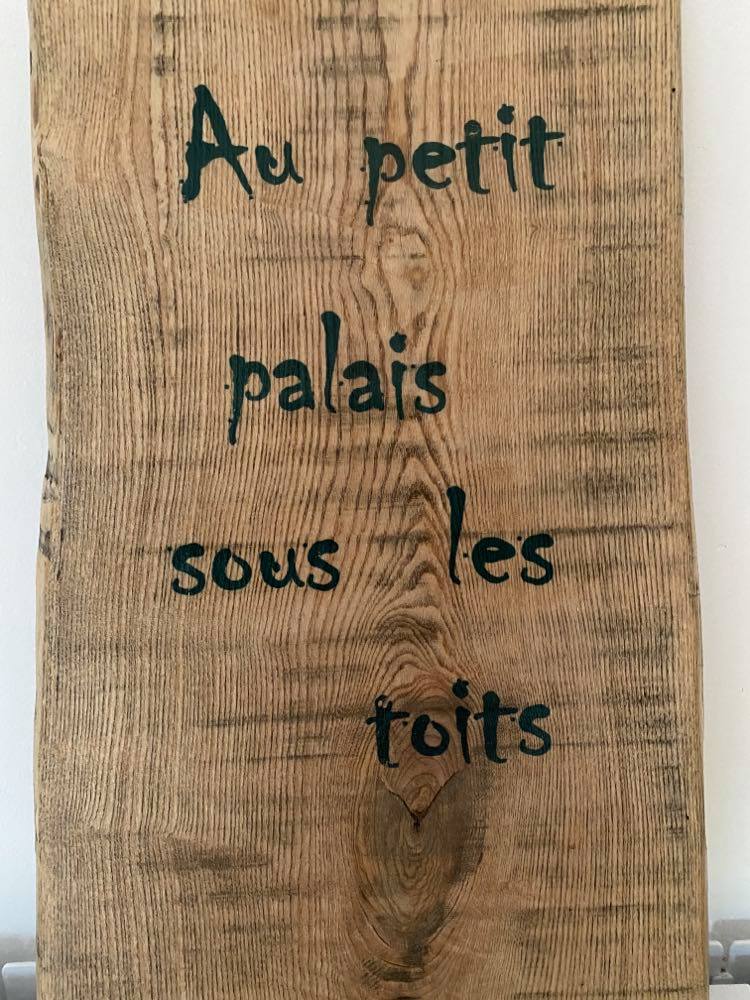 Au petit
palais
sous les
toits